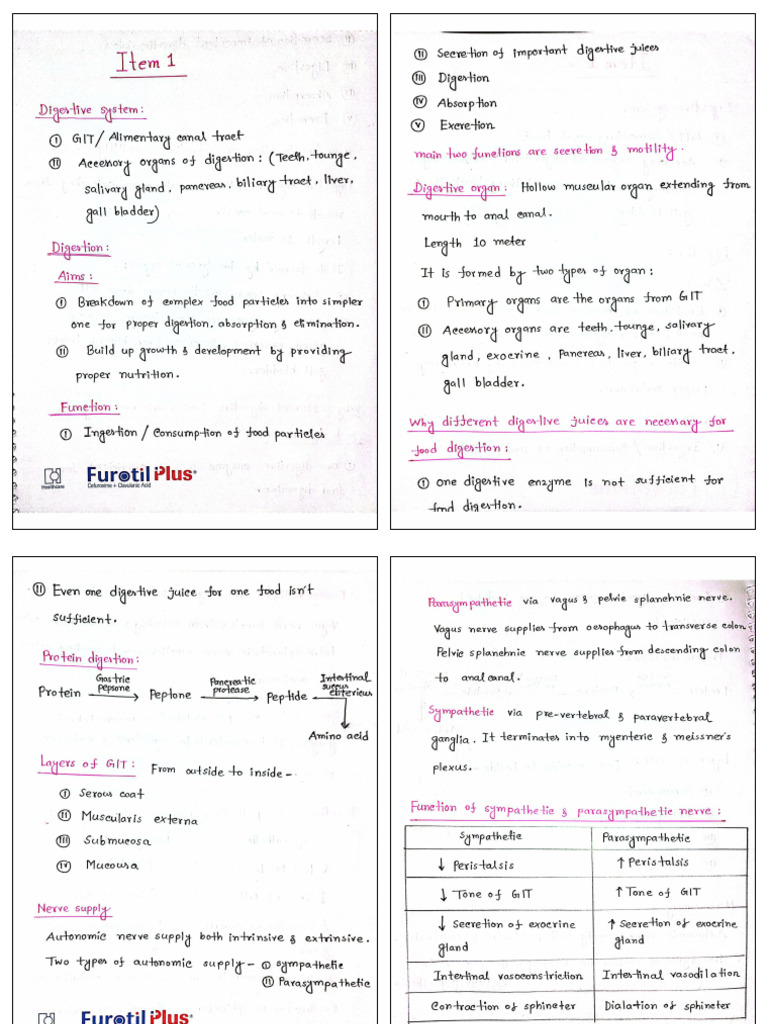 Item 1
Digestive system:
(i) GIT/ Alimentary canal tract
(ii) Accessory organs of digestion: (Teeth, tounge,
salivary gland, pancreas, biliary tract, liver,
gall bladder)
Digestion:
Aims:
(i) Breakdown of complex food particles into simpler
one for proper digestion, absorption & elimination.
(ii) Build up growth & development by providing
proper nutrition.
Function:
(i) Ingestion / Consumption of food particles
Healthcare
Furotil Plus®
Cefuroxime + Clavulanic Acid
(ii) Secretion of important digestive juices
(iii) Digestion
(iv) Absorption
(v) Excretion
main two functions are secretion & motility.
Digestive organ: Hollow muscular organ extending from
mouth to anal canal.
Length 10 meter
It is formed by two types of organ:
(i) Primary organs are the organs from GIT
(ii) Accessory organs are teeth, tounge, salivary
gland, exocrine, Pancreas, liver, biliary tract,
gall bladder.
Why different digestive juices are necessary for
food digestion:
(i) One digestive enzyme is not sufficient for
food digestion.
(ii) Even one digestive juice for one food isn't
sufficient.
Protein digestion:
Protein → Gastric pepsone → Peptone → Pancreatic protease → Peptide → Intestinal succus
Amino acid
Layers of GIT: From outside to inside -
(i) Serous coat
(ii) Muscularis externa
(iii) Submucosa
(iv) Mucousa
Nerve supply
Autonomic nerve supply both intrinsive & extrinsive.
Two types of autonomic supply - (i) Sympathetic
(ii) Parasympathetic
Furotil Plus®
Parasympathetic via vagus & pelvic splanchnic nerve.
Vagus nerve supplies from oesophagus to transverse colon
Pelvic splanchnic nerve supplies from descending colon
to anal canal.
Sympathetic via pre-vertebral & paravertebral
ganglia. It terminates into myenteric & meissner's
plexus.
Function of sympathetic & parasympathetic nerve:
Sympathetic Parasympathetic
↓ Peristalsis ↑ Peristalsis
↓ Tone of GIT ↑ Tone of GIT
↓ Secretion of exocrine gland ↑ Secretion of exocrine gland
Intestinal vasoconstriction Intestinal vasodilation
Contraction of sphincter Dialation of sphincter